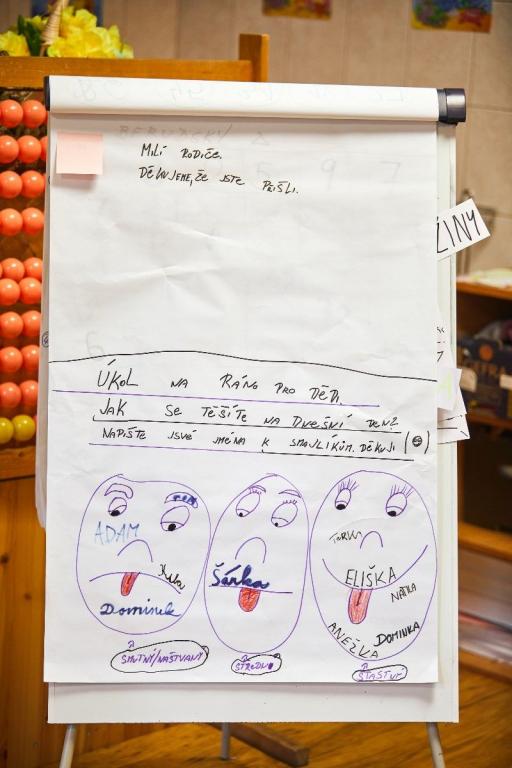 MILÍ RODIČE.
DĚKUJEME, ŽE JSTE PŘIŠLI.
ŽINY
ÚKOL NA RÁNO PRO DĚTI.
JAK SE TĚŠÍTE NA DNEŠNÍ DEN?
NAPIŠTE JSVÉ JMÉNA K SMAJLÍKŮM. DĚKUJI
ADAM
Dominik
SMUTNÝ/NAŠTVANÝ
Šárka
STŘEDNÍ
ELIŠKA
NAŤKA
ANEŽKA
DOMINKA
ŠŤASTNÝ